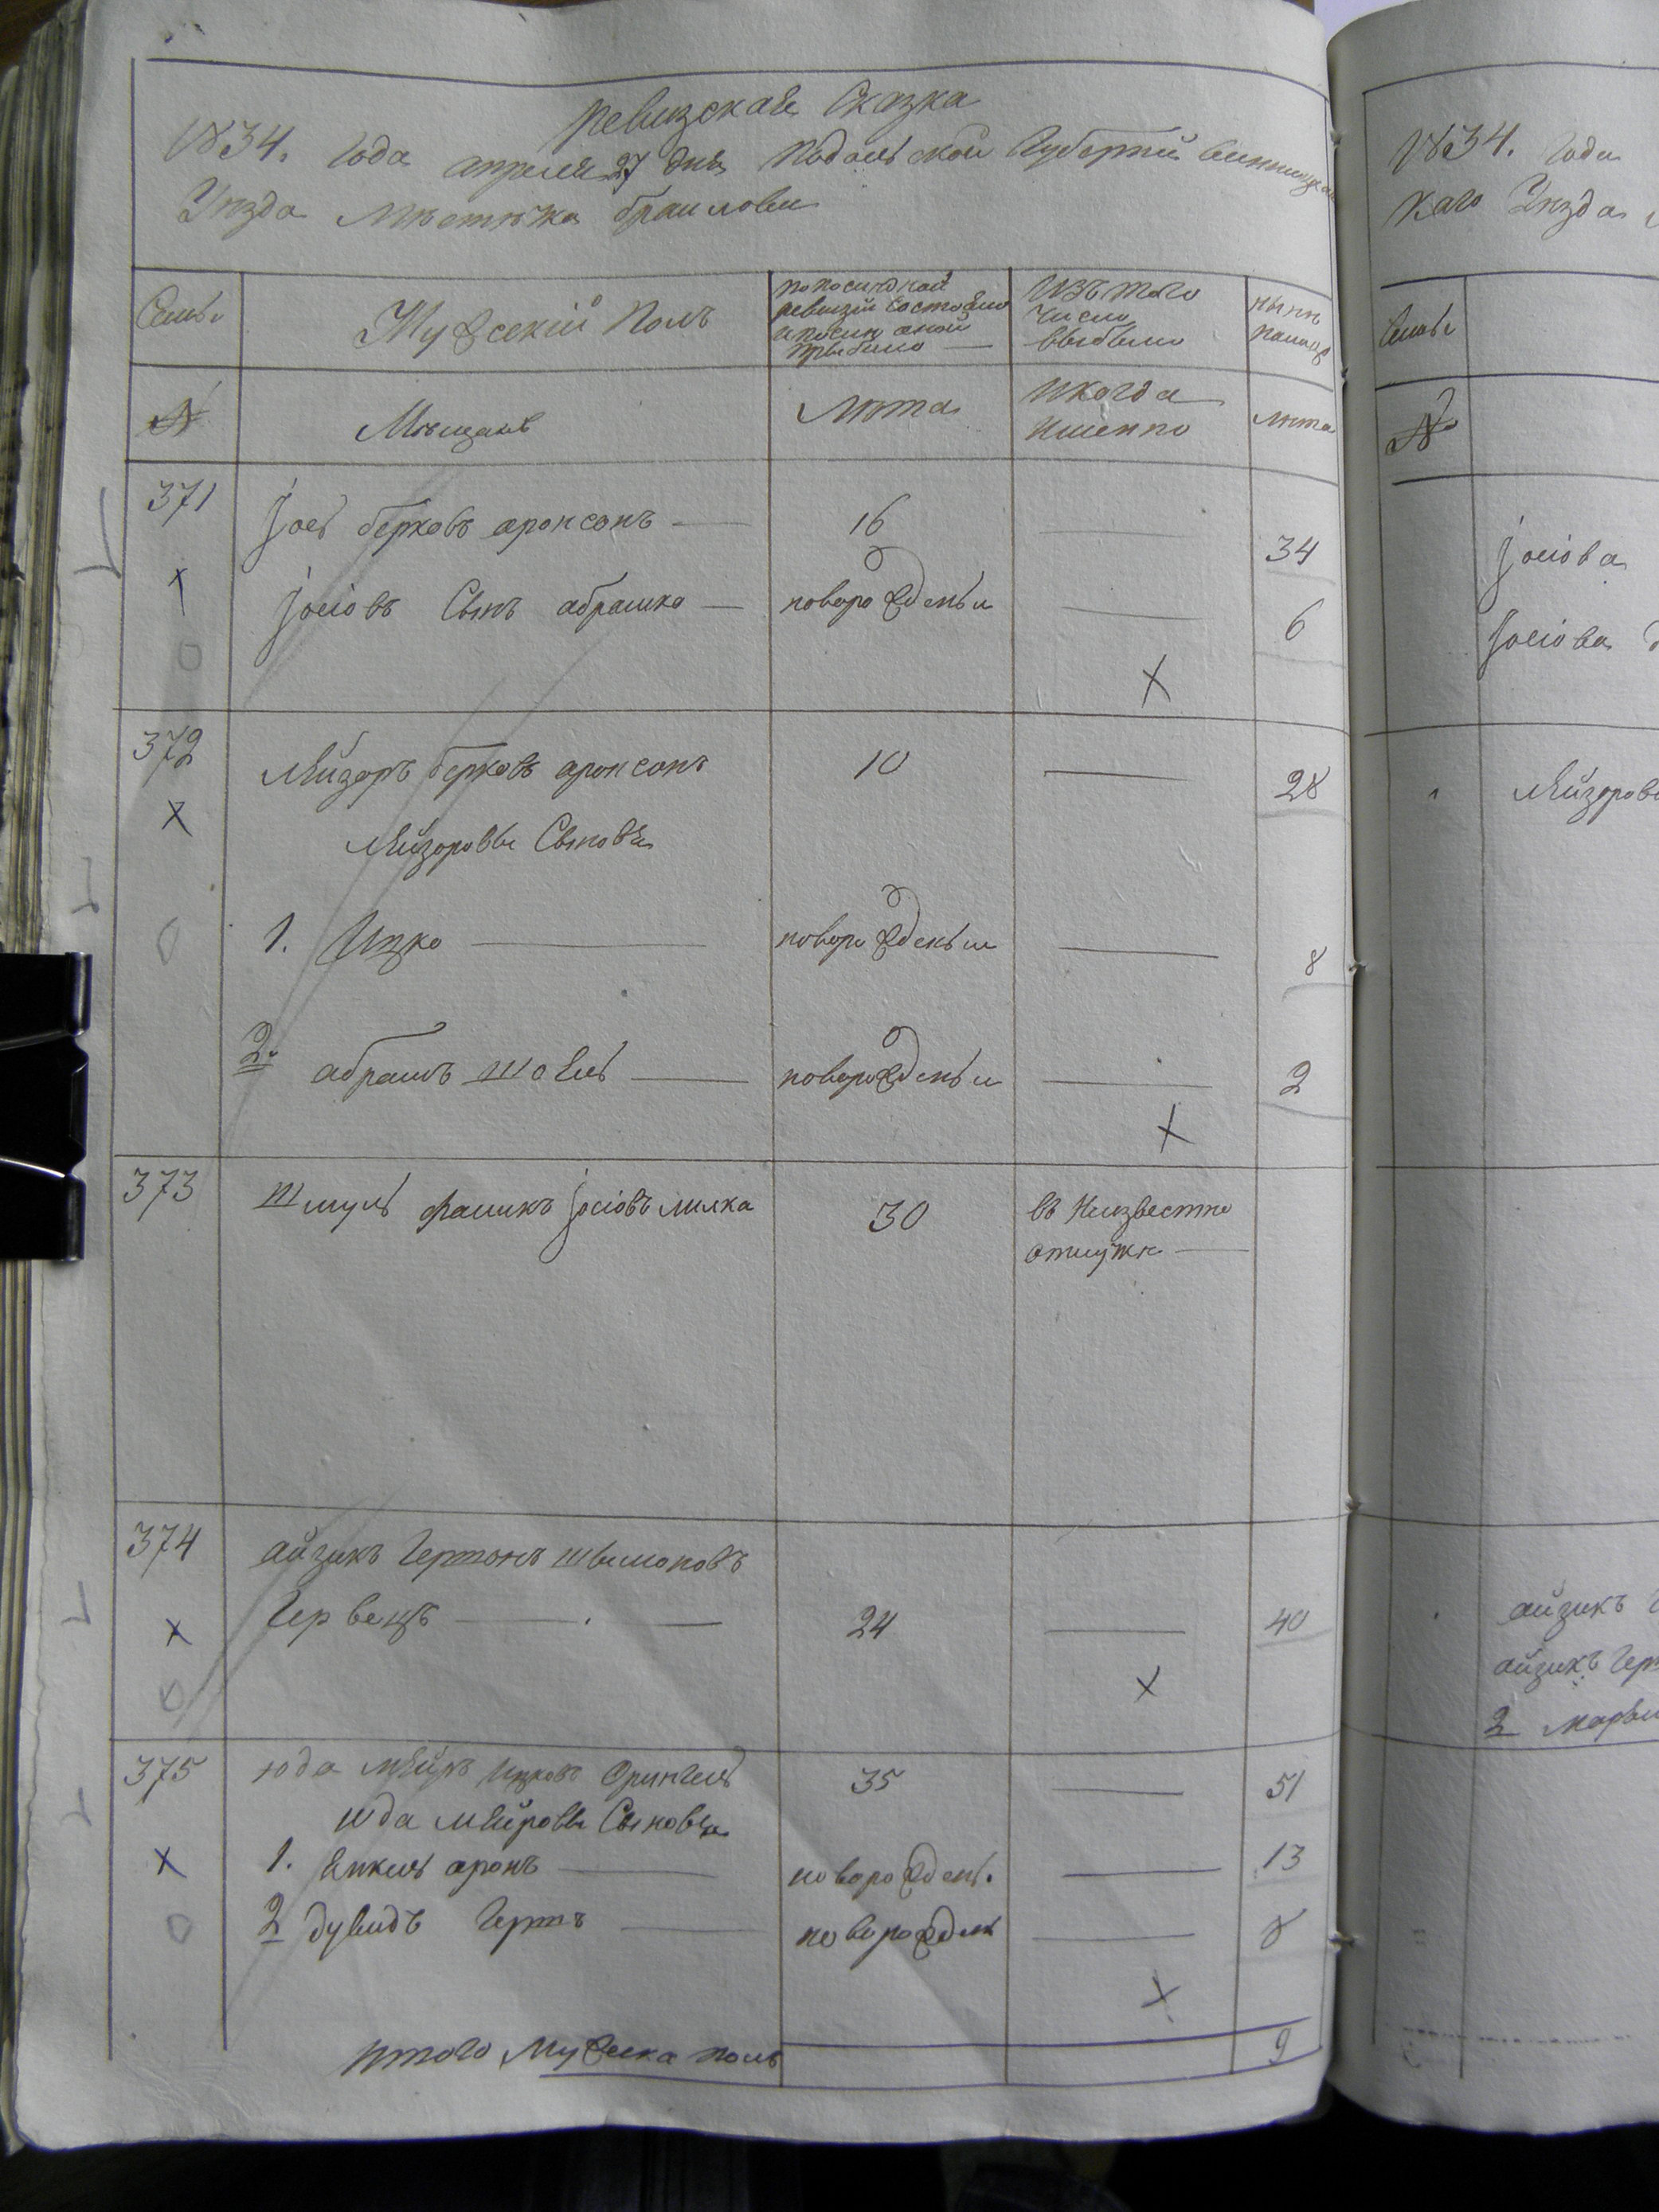 ревизская Сказка
1834. Года апреля 27 дня Подольской Губернии Винницкаго
Уезда местечка браилова
Семьи
Мужеский Полъ
по последной
ревизіи состояло
и после оной
прыбыло
Изъ того
числа
выбыло
ныне
налицо
№
Мещане
Лета
и когда
именно
лета
371
јось берковъ аронсонъ
16
34
јосіовъ Сынъ абрамко
новорожденъи
6
372
Лейзоръ берковъ аронсонъ
10
28
Лейзоровы Сыновя
1. Ицко
новорожденъи
8
2. абрамъ шоель
новорожденъи
2
373
Шмуль јосіовъ
30
въ неизвестно
отлужке
374
айзикъ Гершонъ шымоновъ
24
40
375
юда мейръ ицковъ
35
51
юда мейровы Сыновя
1. янкель аронъ
новорожденъ.
13
2 дувидъ Гершъ
новорожден
8
итого мужеска полъ
9
1834. Года
каго Уезда
Семьи
№
јосіова
јосіова
Лейзорова
айзикъ
айзикъ
2